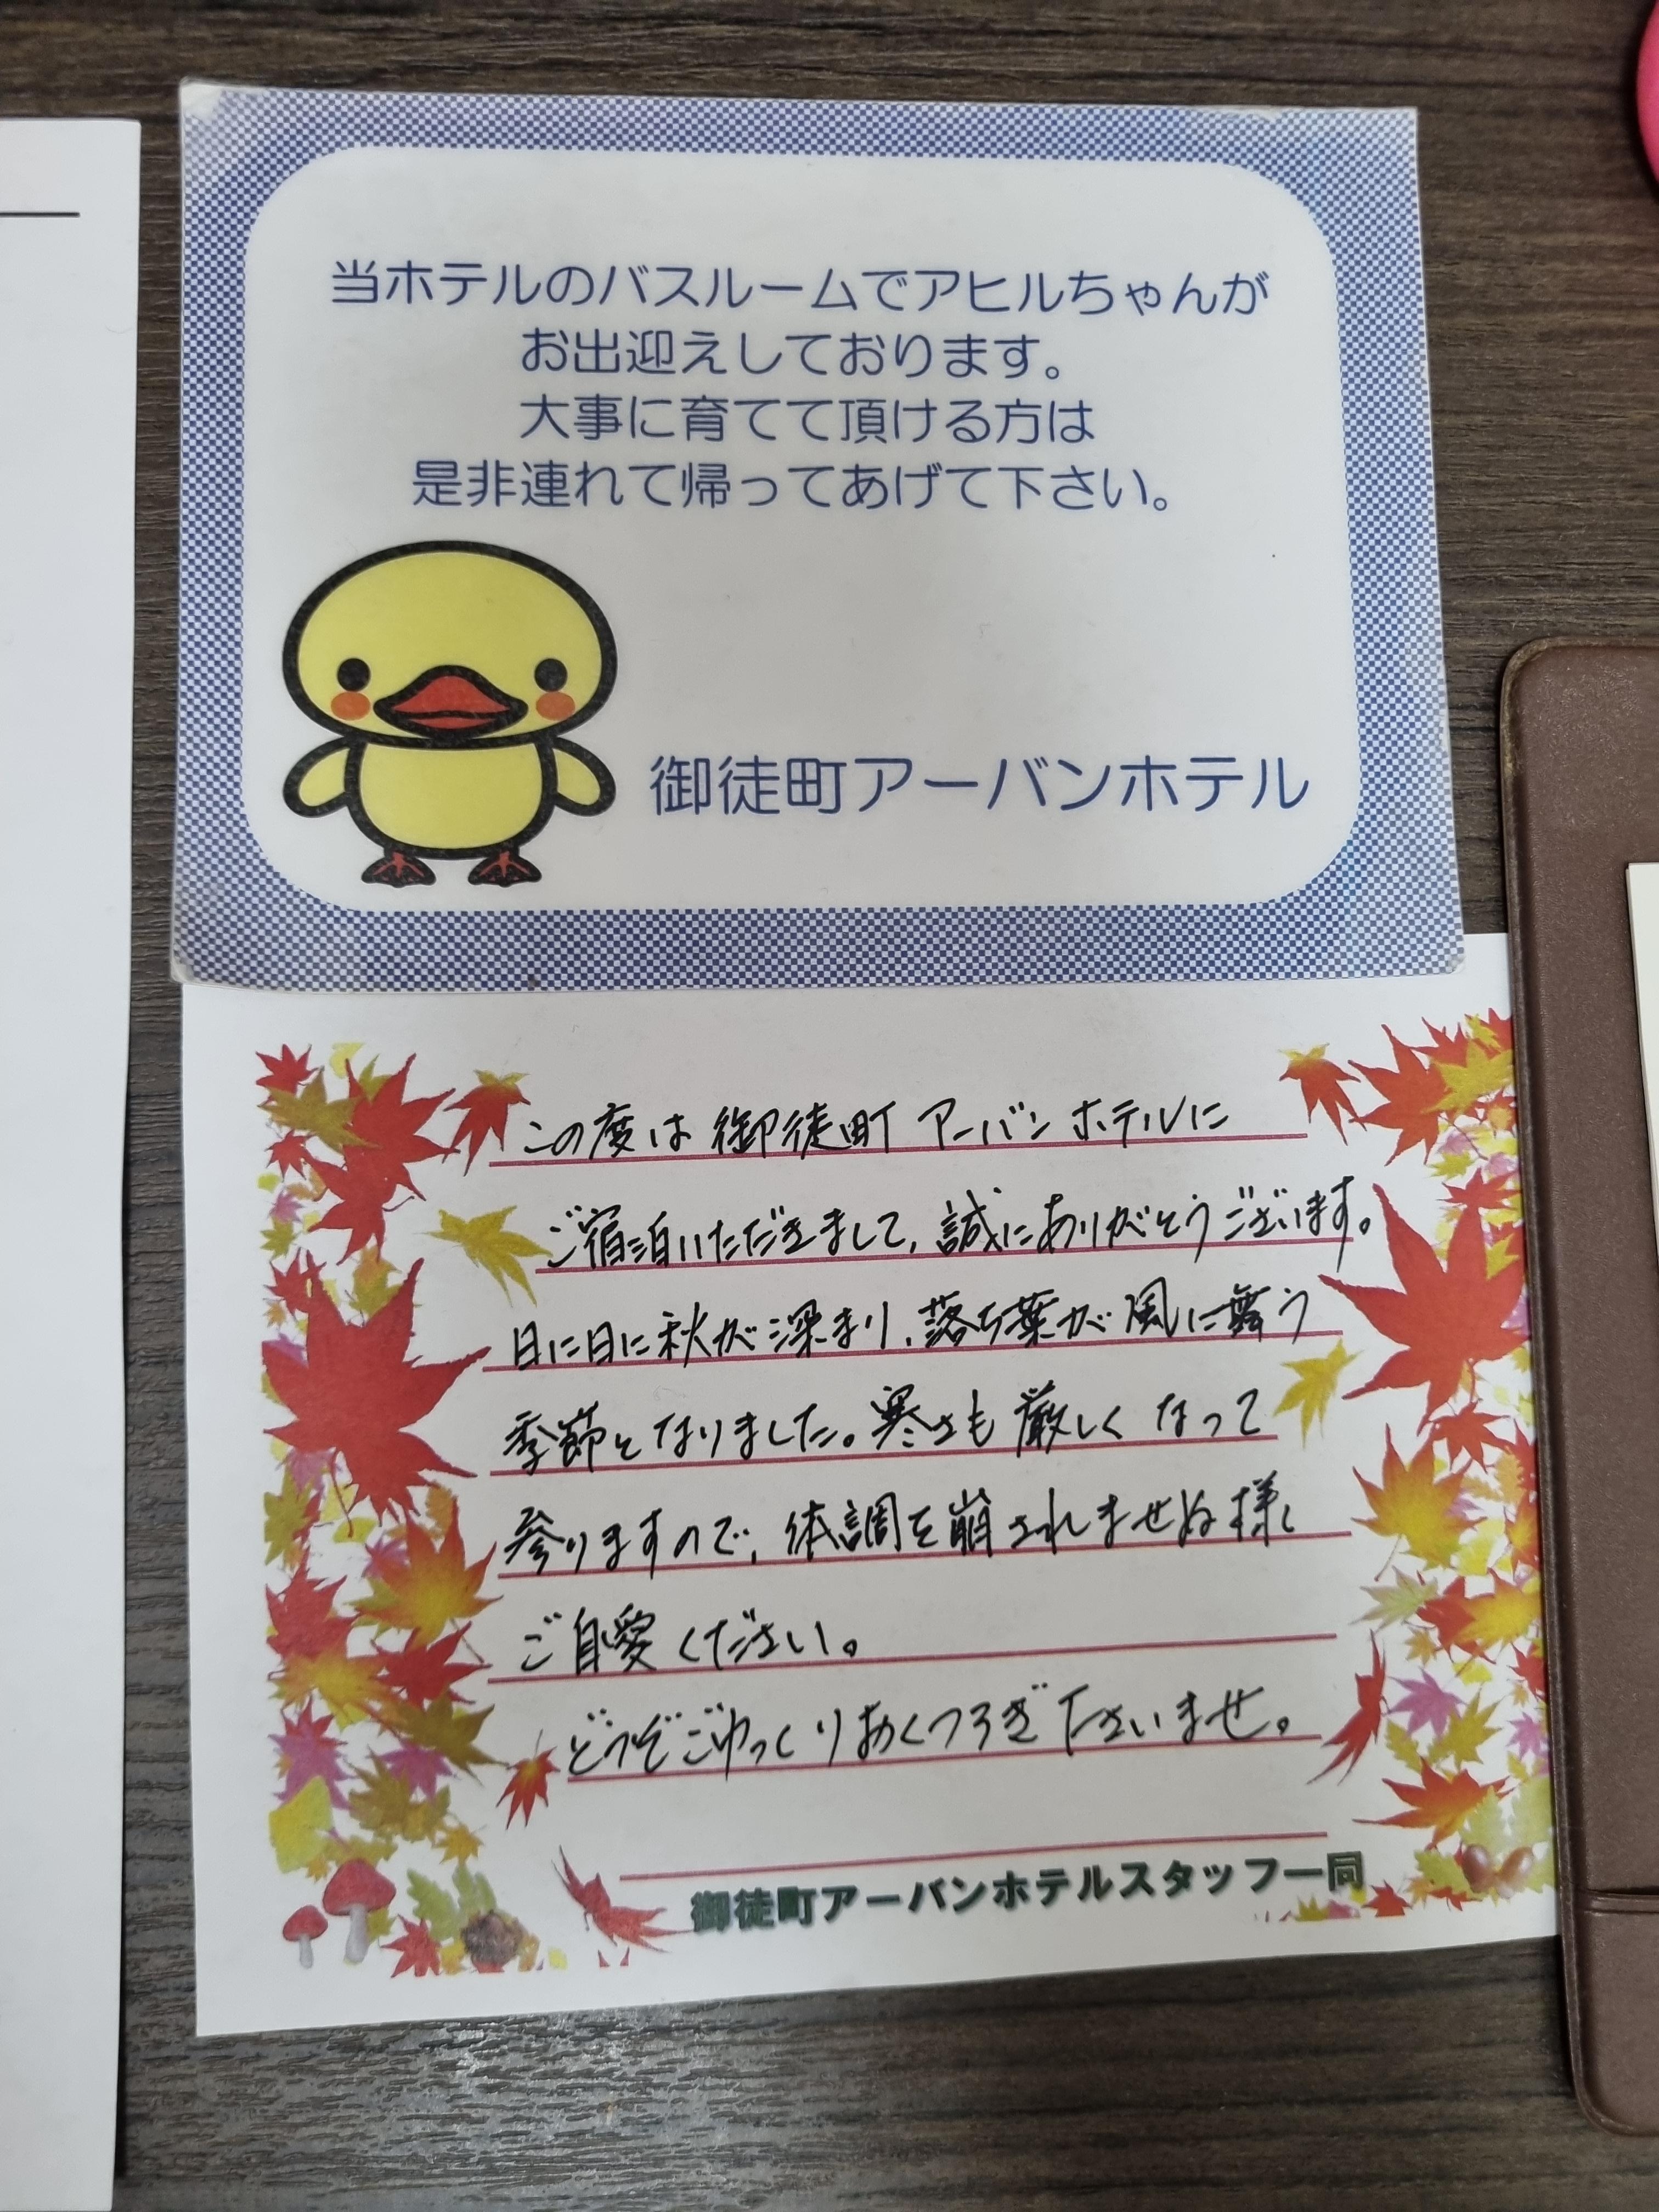 当ホテルのバスルームでアヒルちゃんが
お出迎えしております。
大事に育てて頂ける方は
是非連れて帰ってあげて下さい。
御徒町アーバンホテル
この度は御徒町アーバンホテルに
ご宿泊いただきまして、誠にありがとうございます。
日に日に秋が深まり、落ち葉が風に舞う
季節となりました。寒さも厳しくなって
参りますので、体調を崩されませぬ様
ご自愛ください。
どうぞごゆっくりおくつろぎ下さいませ。
御徒町アーバンホテルスタッフ一同